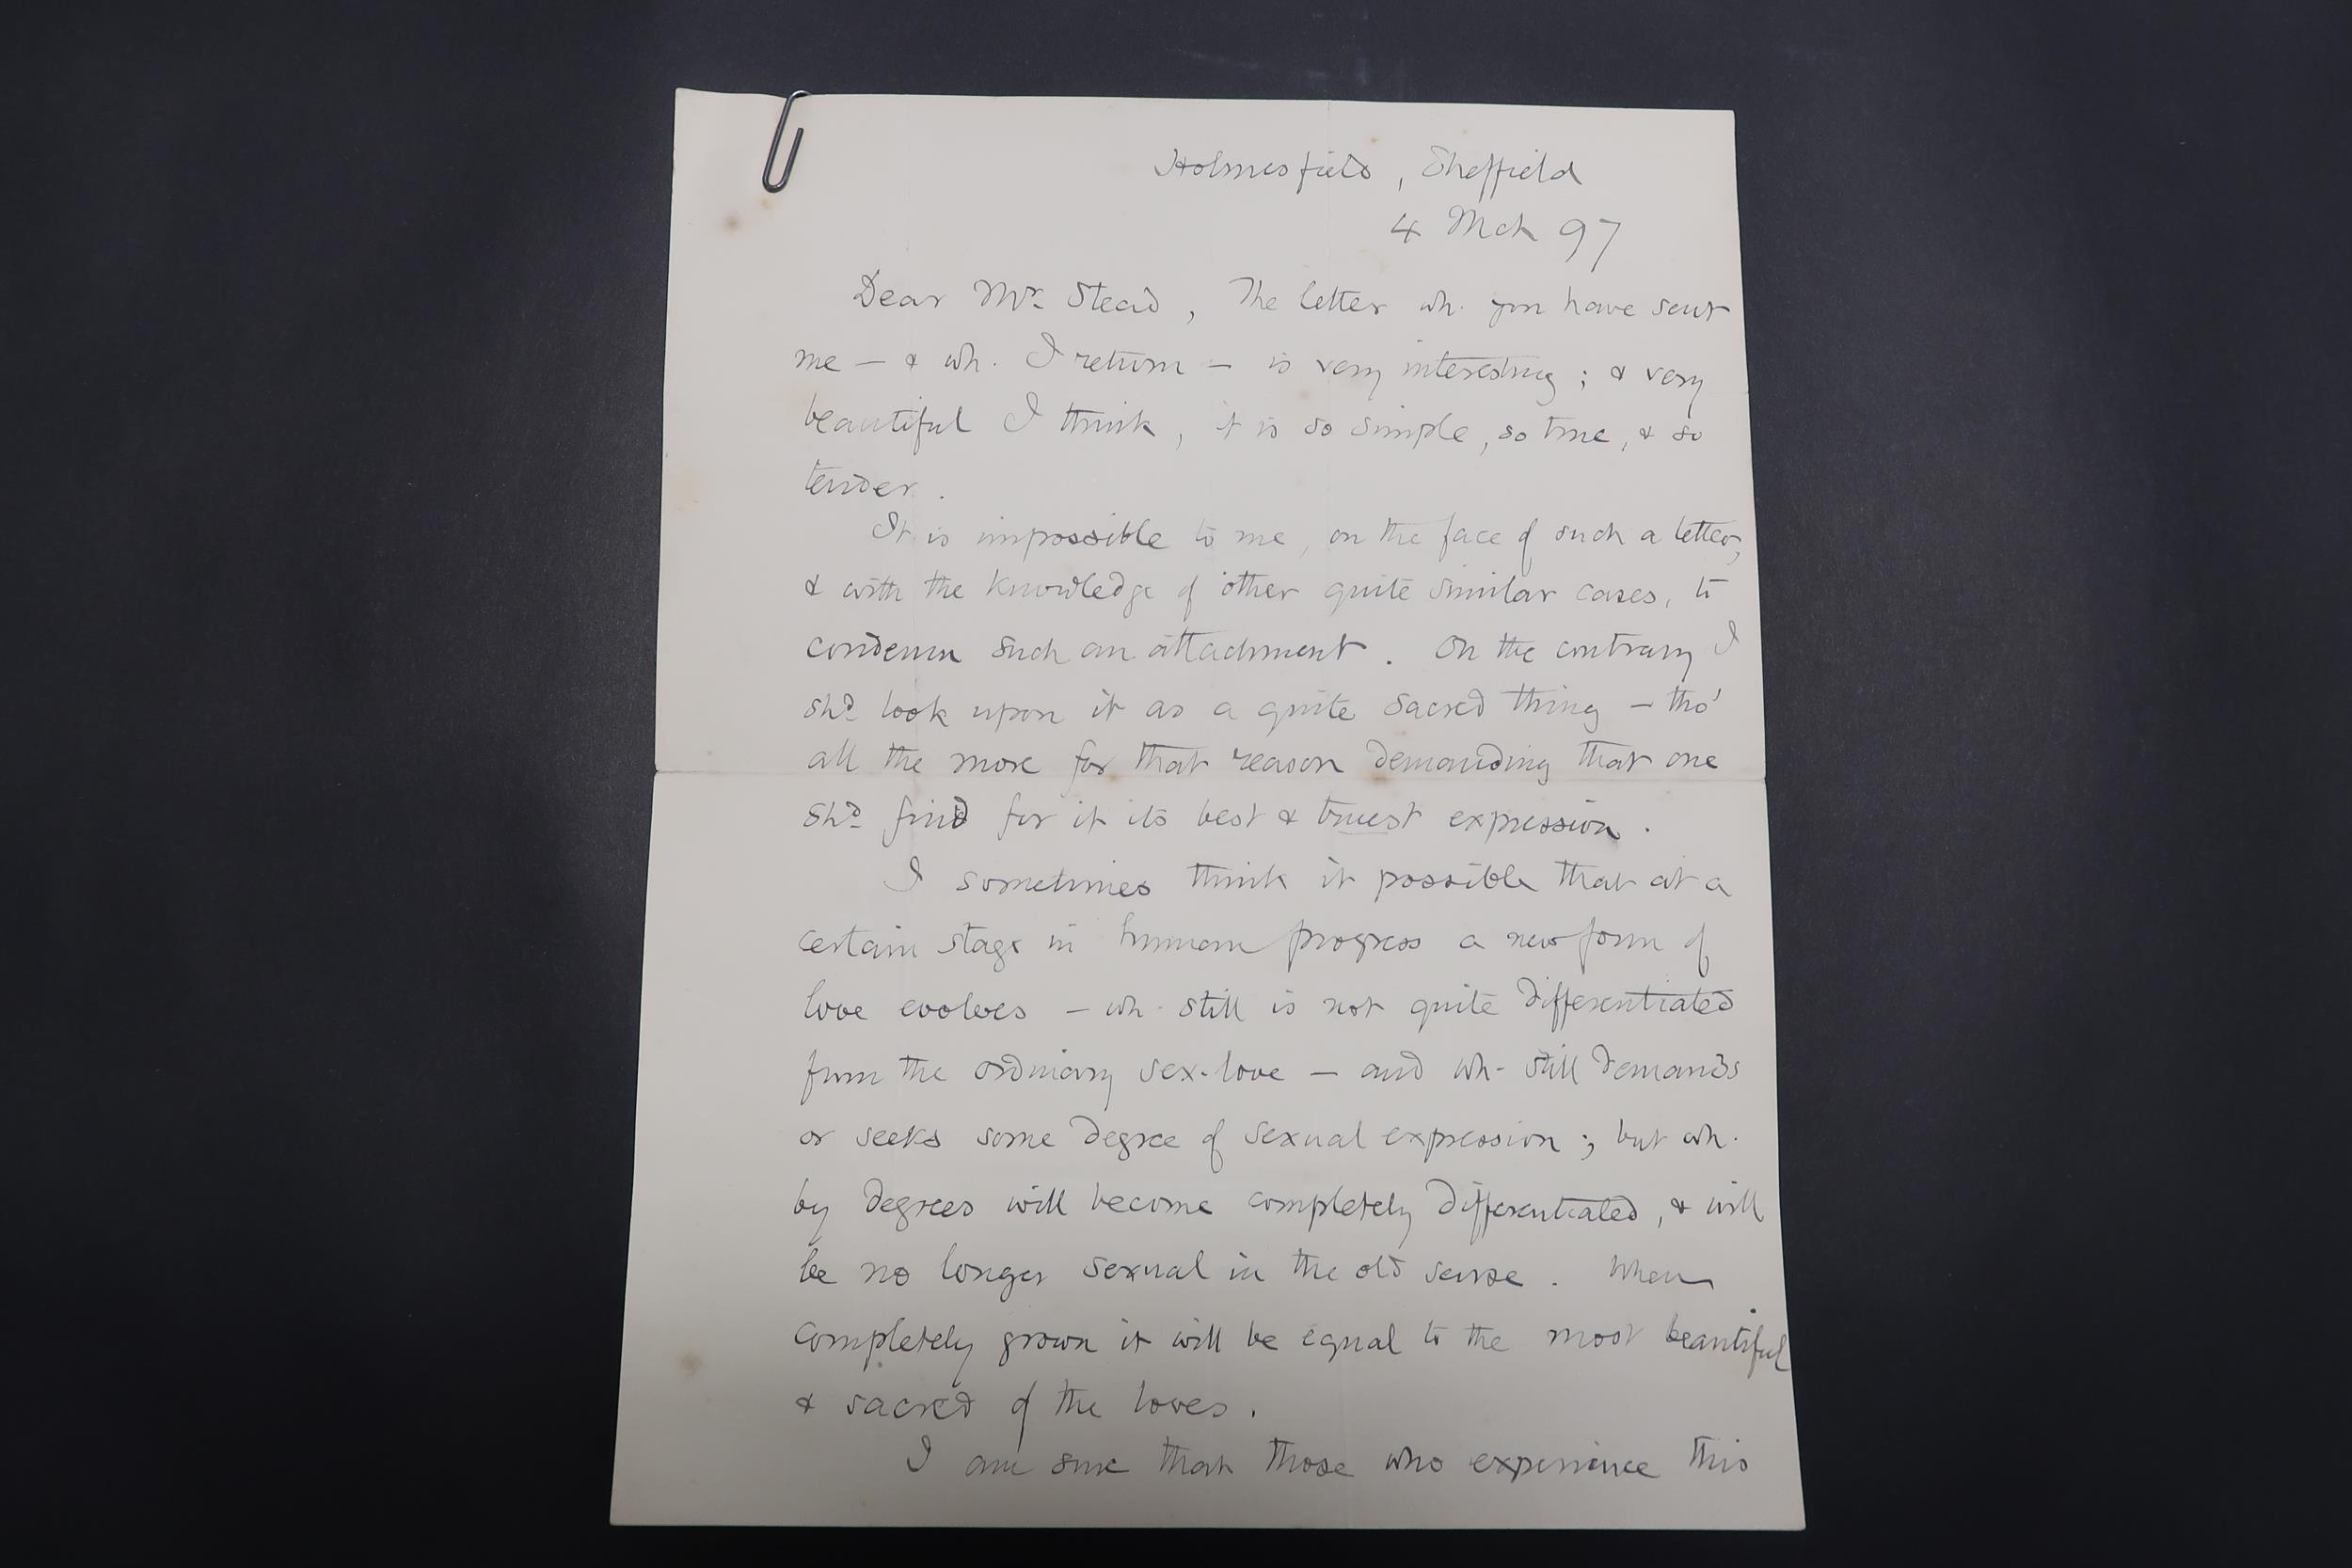 Holmesfield, Sheffield
4 Mch 97
Dear Mr. Stead, The letter wh. you have sent
me – & wh. I return – is very interesting; & very
beautiful I think, it is so simple, so true, & so
tender.
It is impossible to me, on the face of such a letter,
& with the knowledge of other quite similar cases, to
condemn such an attachment. On the contrary I
shd. look upon it as a quite sacred thing – tho'
all the more for that reason demanding that one
shd. find for it its best & truest expression.
I sometimes think it possible that at a
certain stage in human progress a new form of
love evolves – wh. still is not quite differentiated
from the ordinary sex-love – and wh. still demands
or seeks some degree of sexual expression; but wh.
by degrees will become completely differentiated, & will
be no longer sexual in the old sense. When
completely grown it will be equal to the most beautiful
& sacred of the loves.
I am sure that those who experience this